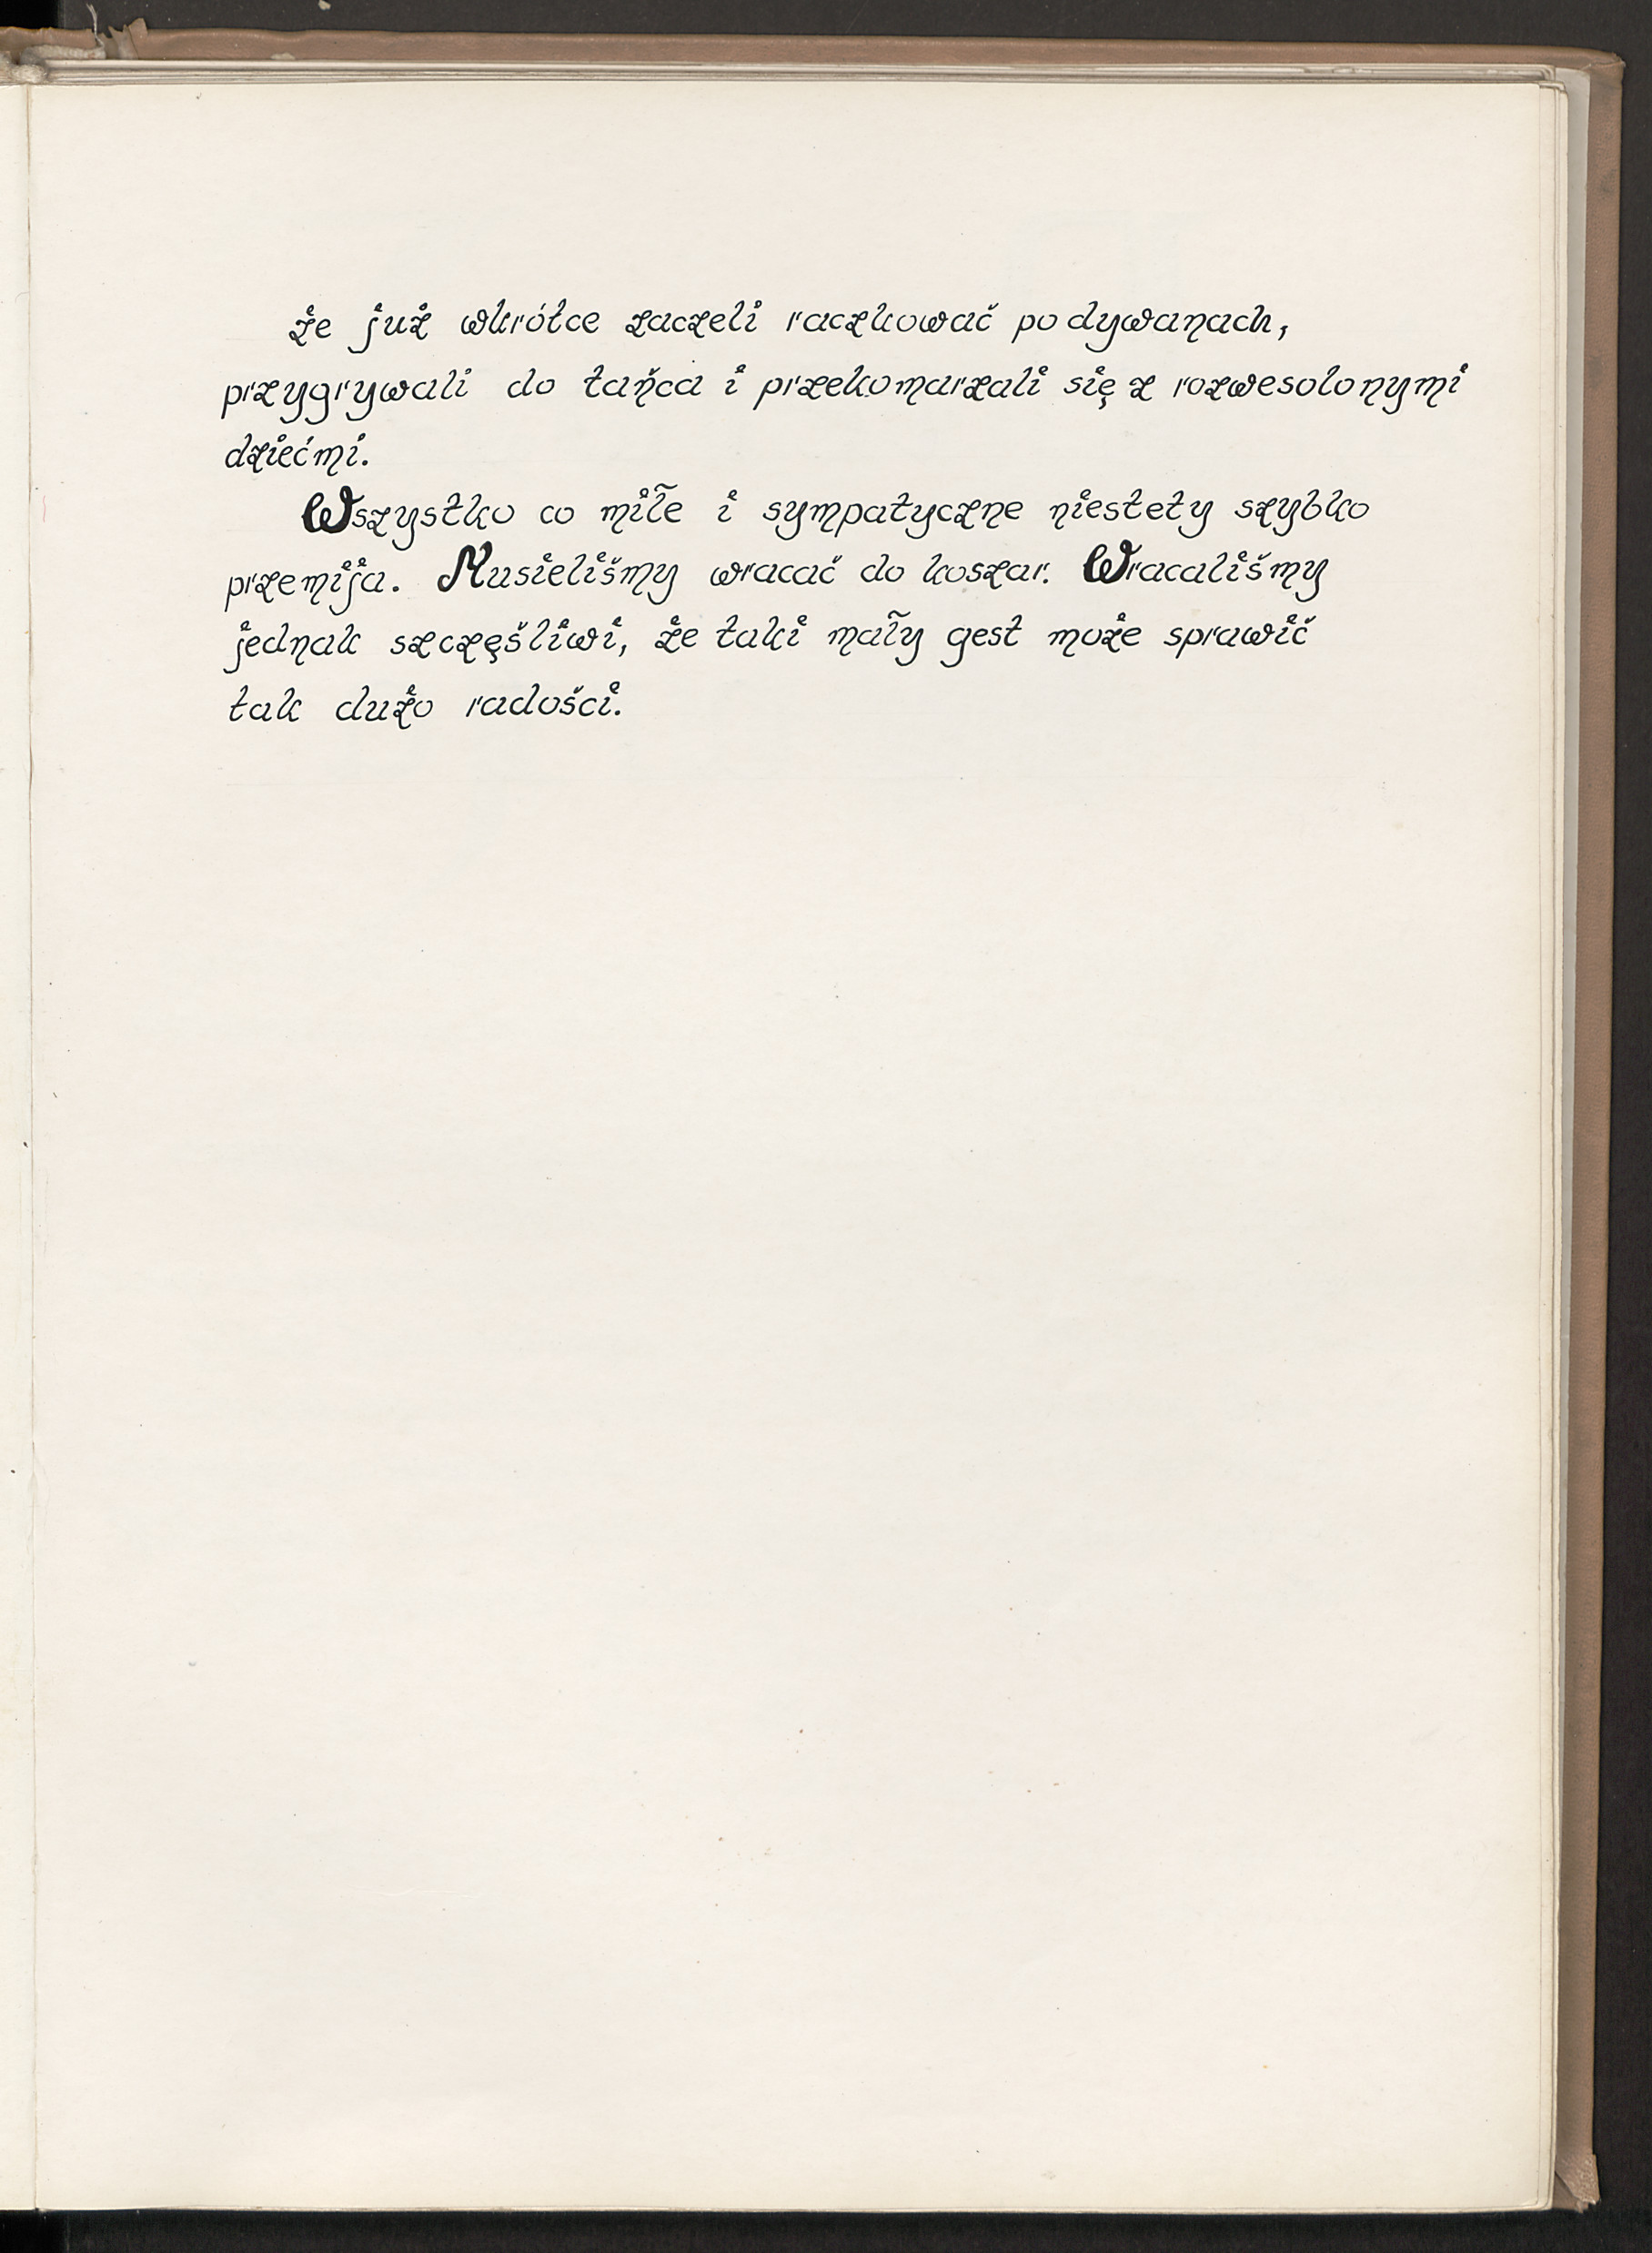 że już wkrótce zaczeli raczkować po dywanach,
przygrywali do tańca i przekomarzali się z rozwesolonymi
dziećmi.
Wszystko co miłe i sympatyczne niestety szybko
przemija. Musieliśmy wracać do koszar. Wracaliśmy
jednak szczęśliwi, że taki mały gest może sprawić
tak dużo radości.